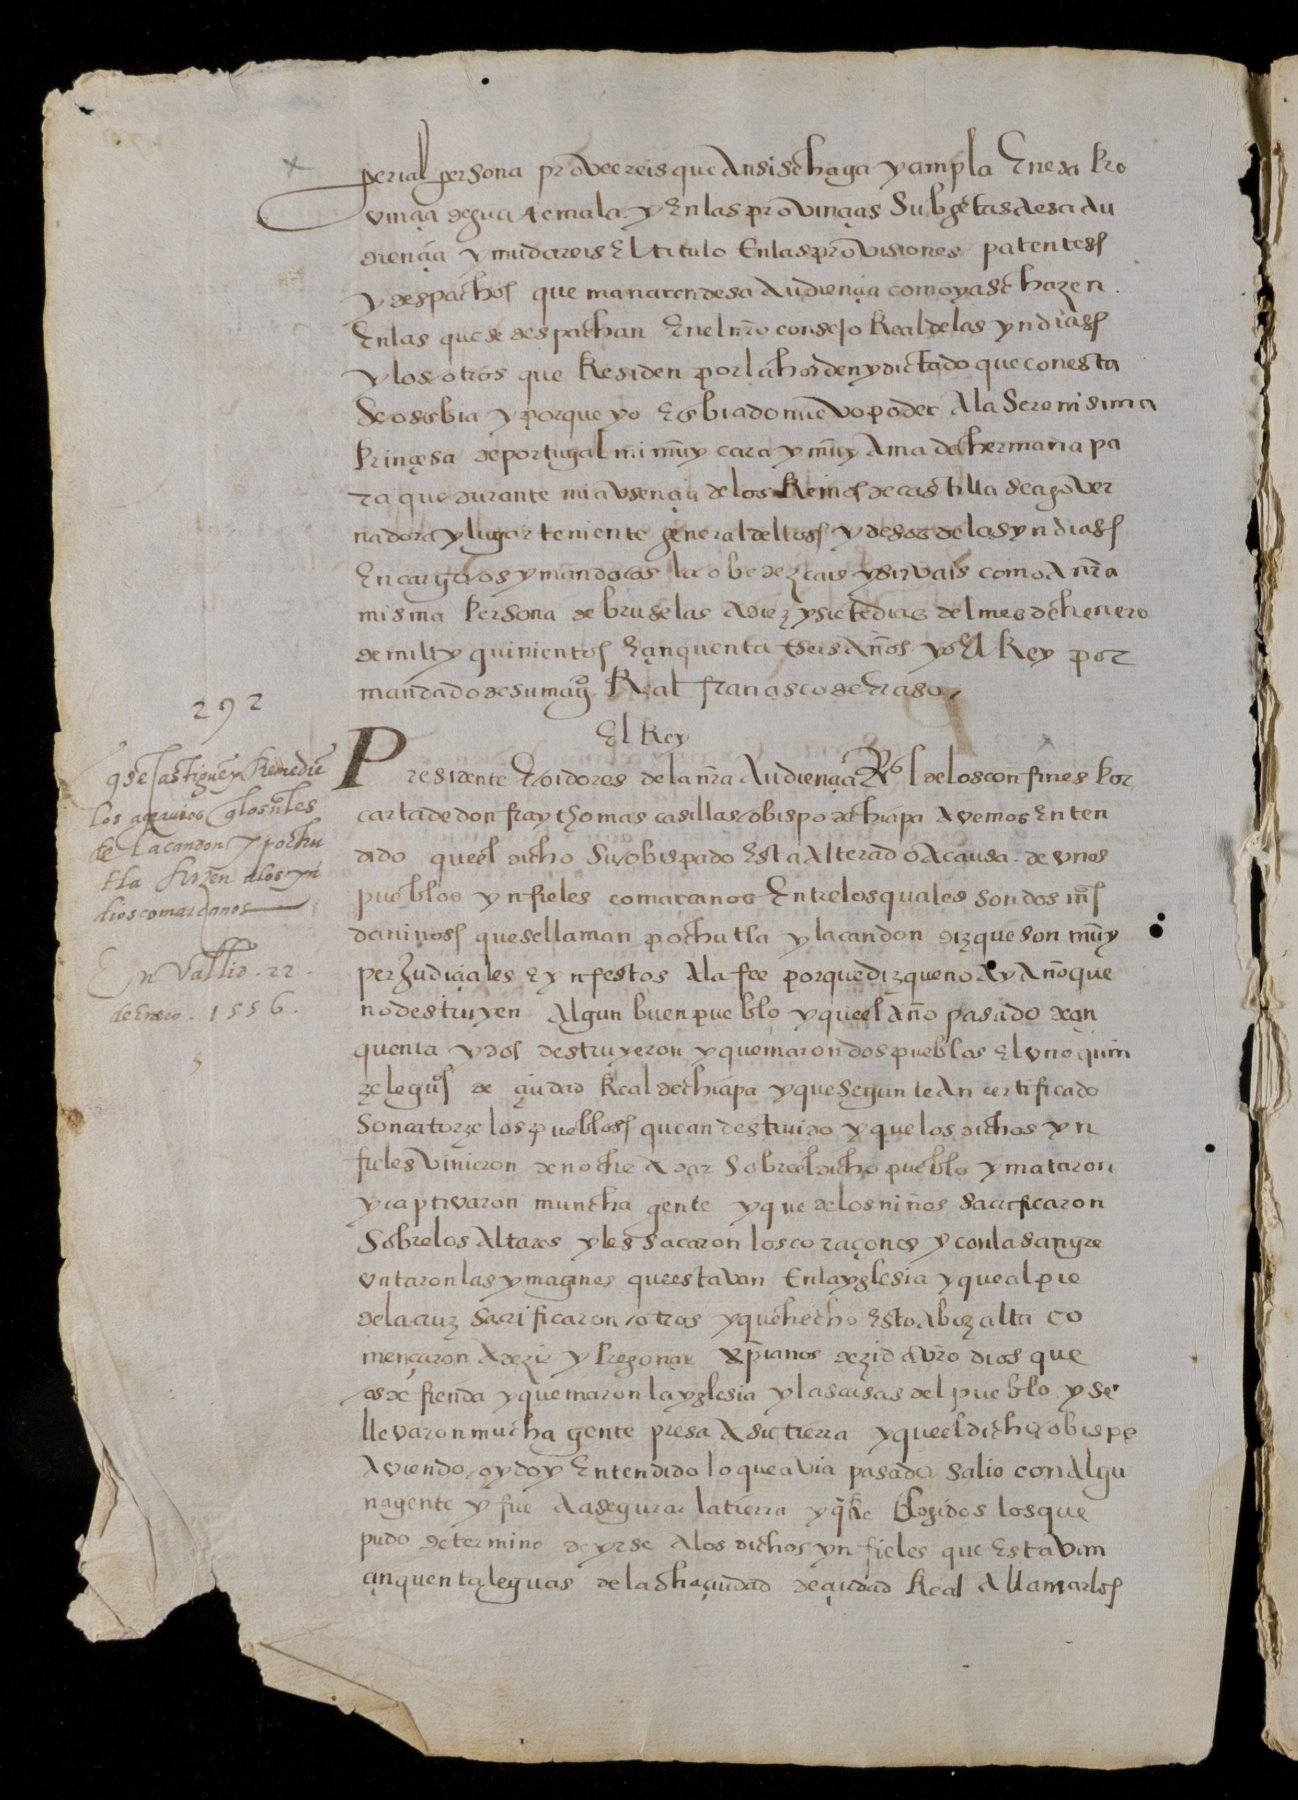 perial persona proveereis que ansi se haga y cumpla En esa Pro
vinçia de guatemala y En las provinçias Subgetas a esa Au
diençia y mudareis El titulo En las provisiones patentes
y despachos que manaren desa Audiençia como ya se hazen
En las que se despachan En el nro consejo Real de las yndias
y los otros que Residen por la horden y dictado que con esta
Se os enbia y porque yo E enbiado nuevo poder A la Serenisima
Prinçesa de portugal mi muy cara y muy Amada hermana pa
ra que durante mi ausençia de los Reinos de castilla sea gover
nadora y lugar teniente general dellos y desos de las yndias
Encargo os y mando os la obedezcais y sirvais como A nra
misma Persona de bruselas A diez y siete dias del mes de henero
de mill y quinientos E çinquenta E seis Años yo El Rey por
mandado de su magd Real francisco de Eraso
El Rey
Presidente E oidores de la nra Audiençia Rl de los confines Por
carta de don fray thomas casillas obispo de chiapa Avemos Enten
dido que el dicho Su obispado Esta Alterado A causa de unos
pueblos ynfieles comarcanos Entre los quales son dos mas
daninos que se llaman pochutla y lacandon diz que son muy
perJudiçiales E ynfestos A la fee porque diz que no Ay Año que
no destruyen Algun buen pueblo y que el Año pasado de çin
quenta y dos destruyeron y quemaron dos pueblos El uno quin
ze leguas de çiudad Real de chiapa y que segun le An certificado
Son catorze los pueblos que an destruido y que los dichos yn
fieles vinieron de noche A dar Sobre el dicho pueblo y mataron
y captivaron muncha gente y que de los niños sacrificaron
Sobre los Altares y les sacaron los coraçones y con la sangre
untaron las ymagines que estavan En la yglesia y que al pie
de la cruz sacrificaron otros y que hecho Esto A boz alta co
mençaron A dezir y Pregonar xpianos dezid A vro dios que
os defienda y quemaron la yglesia y las casas del pueblo y se
llevaron mucha gente presa A su tierra y que el dicho obispo
Aviendo oydo y Entendido lo que avia pasado salio con Algu
na gente y fue A asegurar la tierra y que Recogidos los que
pudo determino de yrse A los dichos ynfieles que Estavan
çinquenta leguas de la dha çiudad de çiudad Real A llamarlos
292
q se castiguen y Remedie
los agravios q los ules
de Lacandon y pochu
tla hizen A los yn
dios comarcanos
En Vallid . 22 .
de Enero . 1556 .